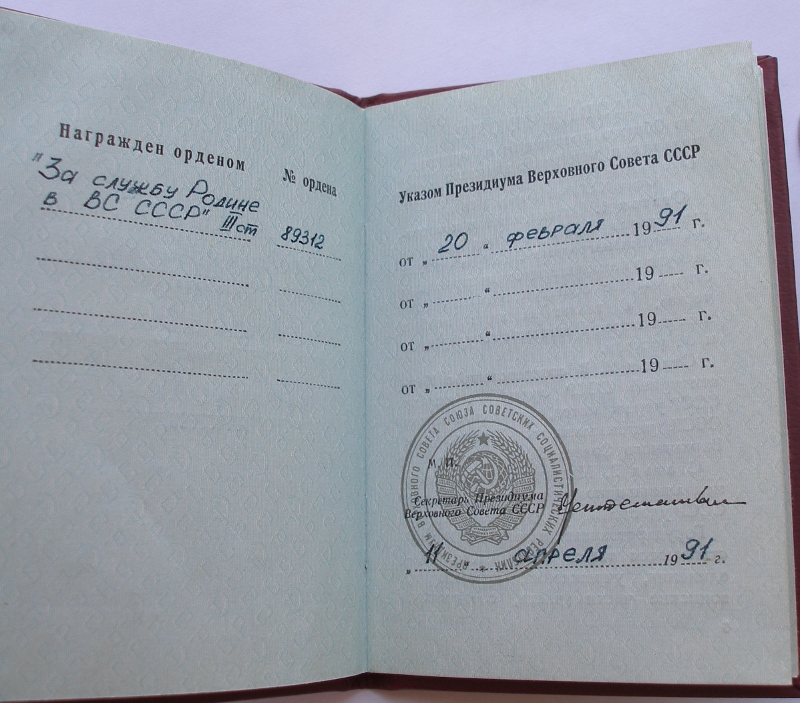 Награжден орденом № ордена
"За службу Родине
в ВС СССР" III ст 89312
Указом Президиума Верховного Совета СССР
от „ 20 “ февраля 1991 г.
от „ “ 19 г.
от „ “ 19 г.
от „ “ 19 г.
ПРЕЗИДИУМ ВЕРХОВНОГО СОВЕТА СОЮЗА СОВЕТСКИХ СОЦИАЛИСТИЧЕСКИХ РЕСПУБЛИК
М. П.
Секретарь Президиума
Верховного Совета СССР
„ 11 апреля 1991 г.